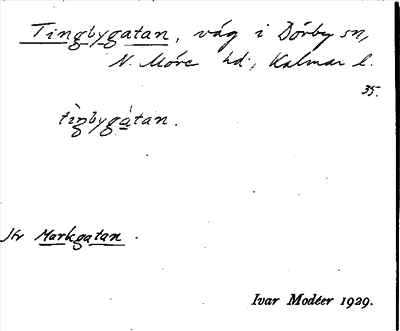 Tingbygatan, väg i Dörby sn,
N. Möre hd, Kalmar l.
35.
tìngbygàtan.
Jfr Markgatan.
Ivar Modéer 1929.